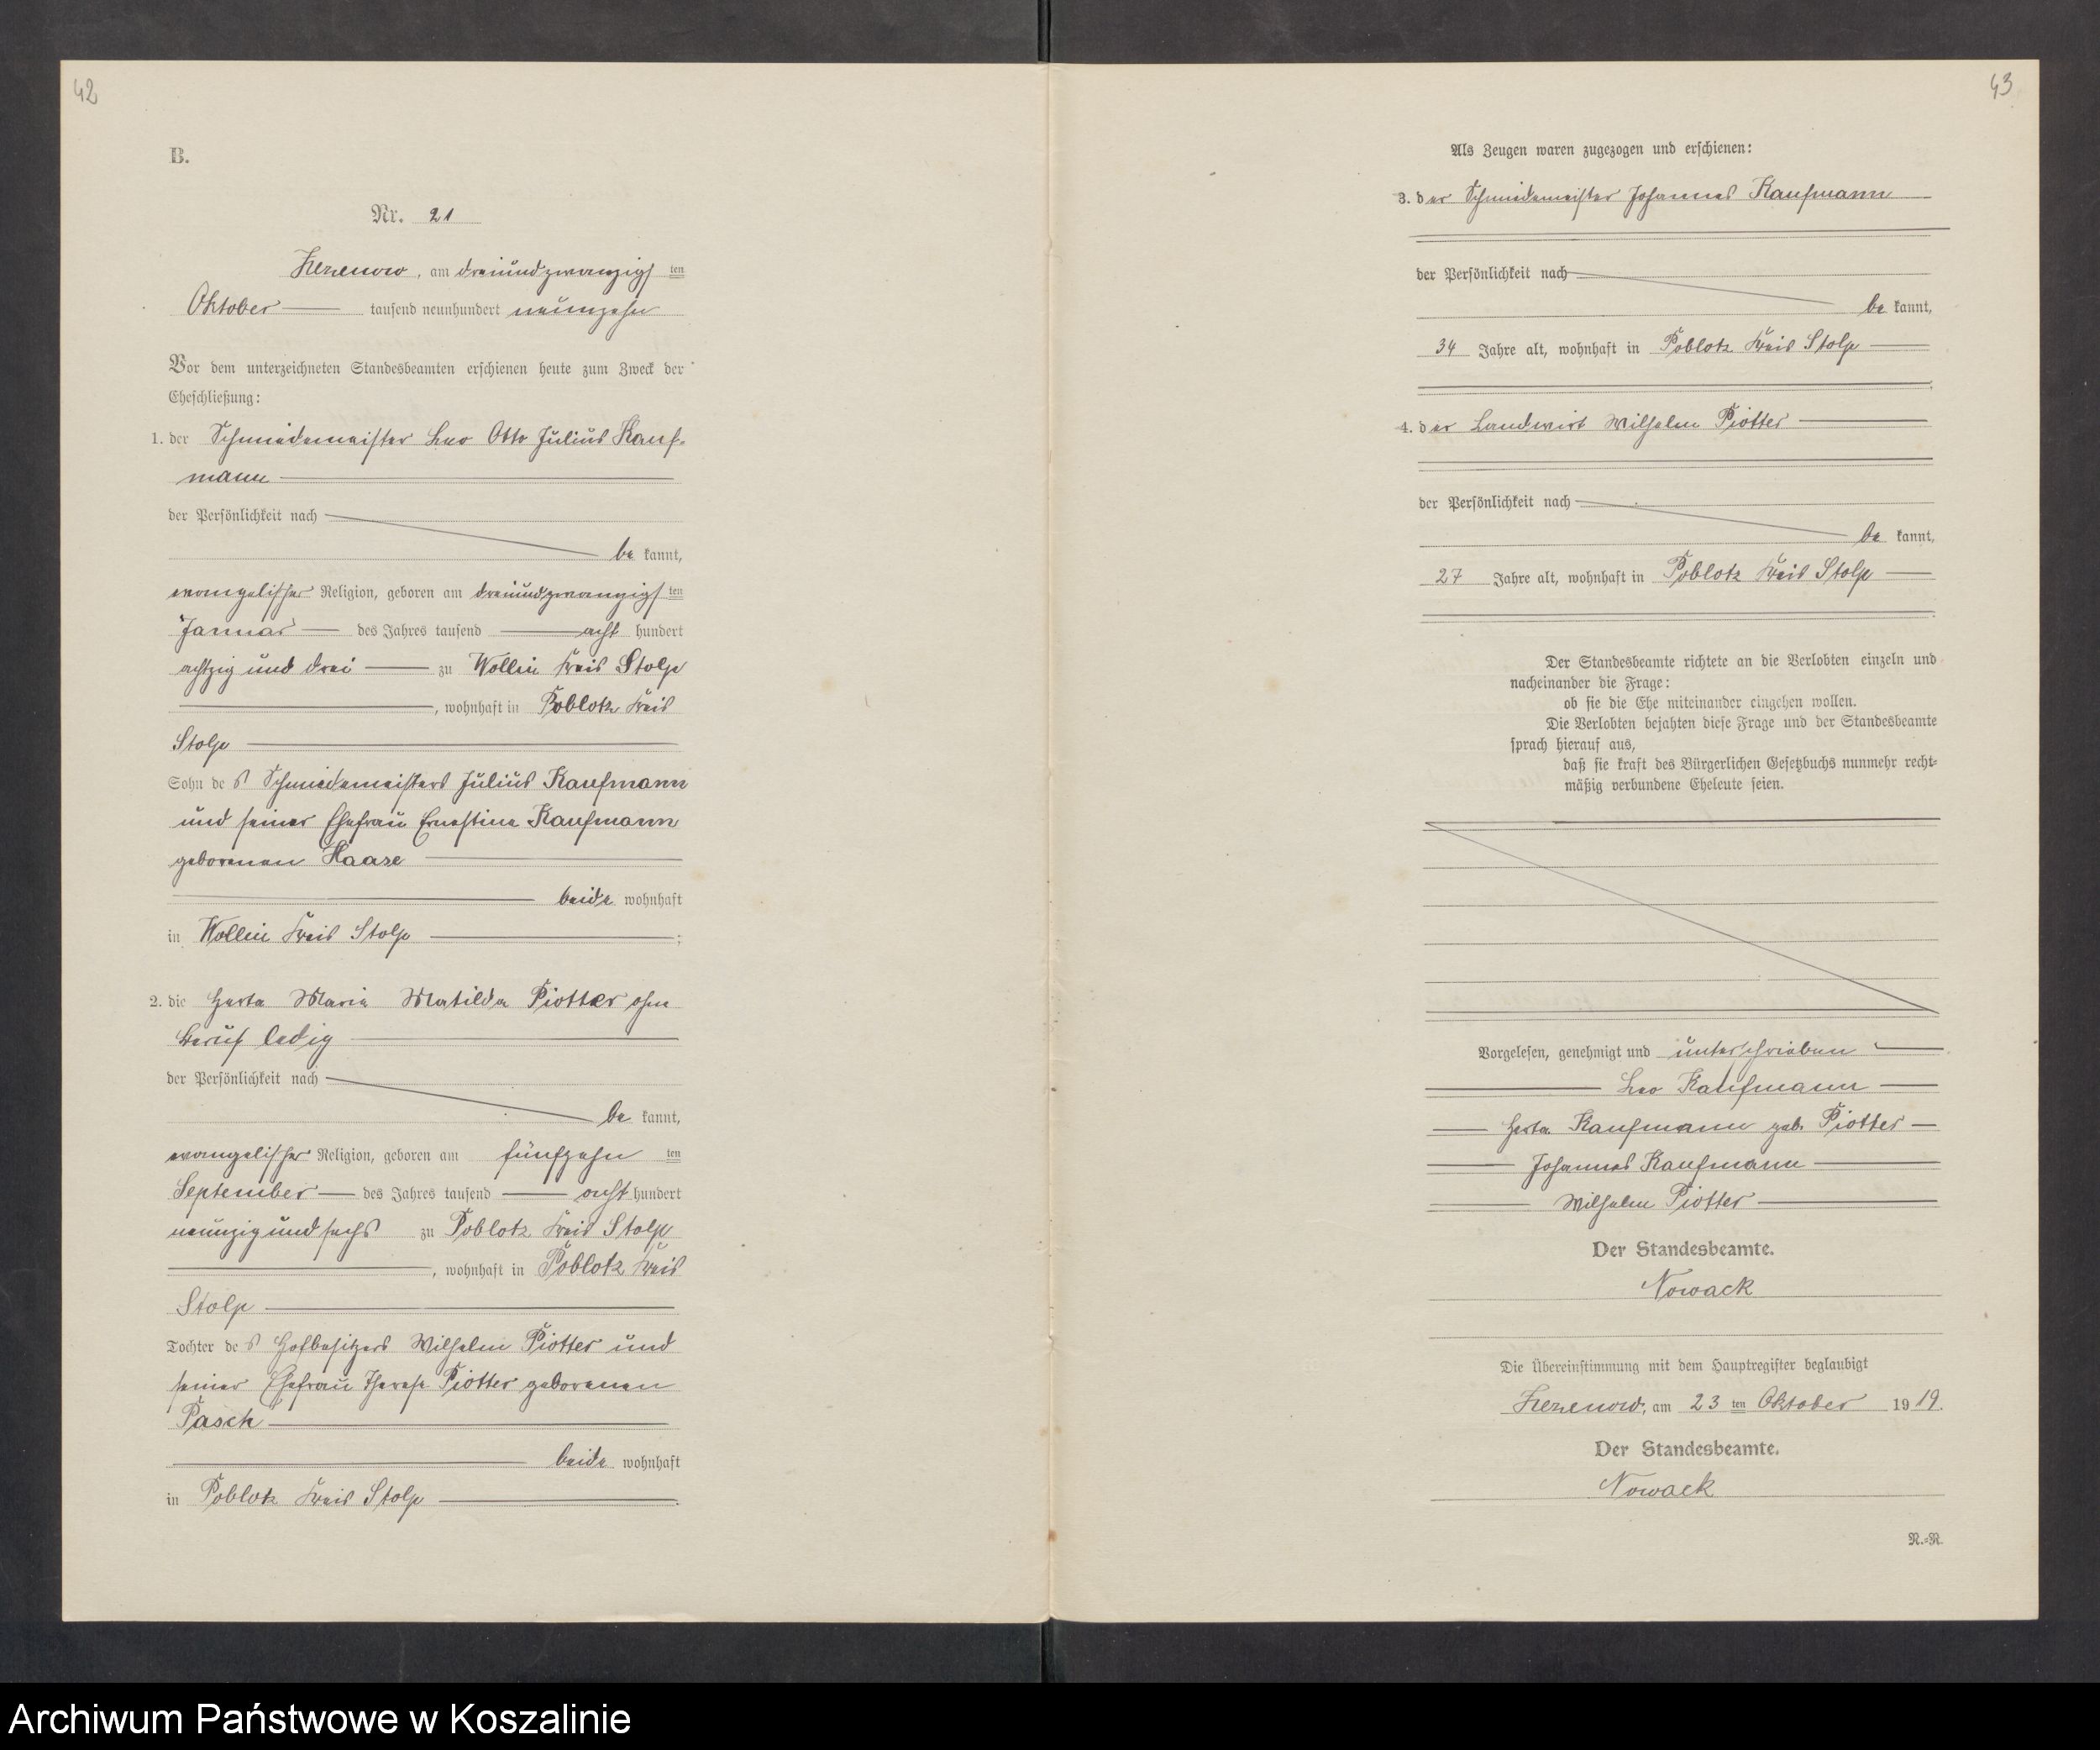 42
B.
Nr. 21
Zezenow, am dreiundzwanzigsten
Oktober tausend neunhundert neunzehn
Vor dem unterzeichneten Standesbeamten erschienen heute zum Zweck der
Eheschließung:
1. der Schmiedemeister Leo Otto Julius Kauf-
mann
der Persönlichkeit nach
be kannt,
evangelischer Religion, geboren am dreiundzwanzigsten
Januar des Jahres tausend acht hundert
achtzig und drei zu Wollin Kreis Stolp
, wohnhaft in Poblotz Kreis
Stolp
Sohn des Schmiedemeisters Julius Kaufmann
und seiner Ehefrau Ernestine Kaufmann
geborenen Haase
beide wohnhaft
in Wollin Kreis Stolp ;
2. die Herta Maria Matilde Piotter ohne
Beruf ledig
der Persönlichkeit nach
be kannt,
evangelischer Religion, geboren am fünfzehn ten
September des Jahres tausend acht hundert
neunzig und sechs zu Poblotz Kreis Stolp
, wohnhaft in Poblotz Kreis
Stolp
Tochter des Hofbesitzers Wilhelm Piotter und
seiner Ehefrau Therese Piotter geborenen
Pasch
beide wohnhaft
in Poblotz Kreis Stolp .
43
Als Zeugen waren zugezogen und erschienen:
3. der Schmiedemeister Johannes Kaufmann
der Persönlichkeit nach
be kannt,
34 Jahre alt, wohnhaft in Poblotz Kreis Stolp
4. der Landwirt Wilhelm Piotter
der Persönlichkeit nach
be kannt,
27 Jahre alt, wohnhaft in Poblotz Kreis Stolp
Der Standesbeamte richtete an die Verlobten einzeln und
nacheinander die Frage:
ob sie die Ehe miteinander eingehen wollen.
Die Verlobten bejahten diese Frage und der Standesbeamte
sprach hierauf aus,
daß sie kraft des Bürgerlichen Gesetzbuchs nunmehr recht-
mäßig verbundene Eheleute seien.
Vorgelesen, genehmigt und unterschrieben
Leo Kaufmann
Herta Kaufmann geb. Piotter
Johannes Kaufmann
Wilhelm Piotter
Der Standesbeamte.
Nowack
Die Übereinstimmung mit dem Hauptregister beglaubigt
Zezenow, am 23 ten Oktober 1919.
Der Standesbeamte.
Nowack
R.-N.
Archiwum Państwowe w Koszalinie